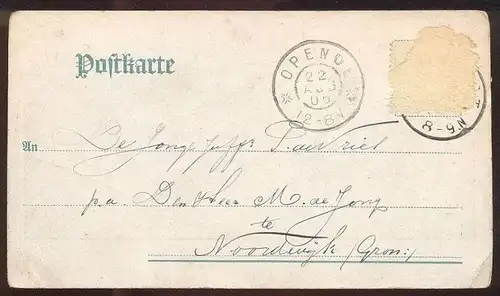 Postkarte
OPENDE
22
AUG
05
12-8N
8-9N
An De Jonge Juffr. T. de Vries
p.a. Den Heer M. de Jong
te
Noordwijk (Gron:)